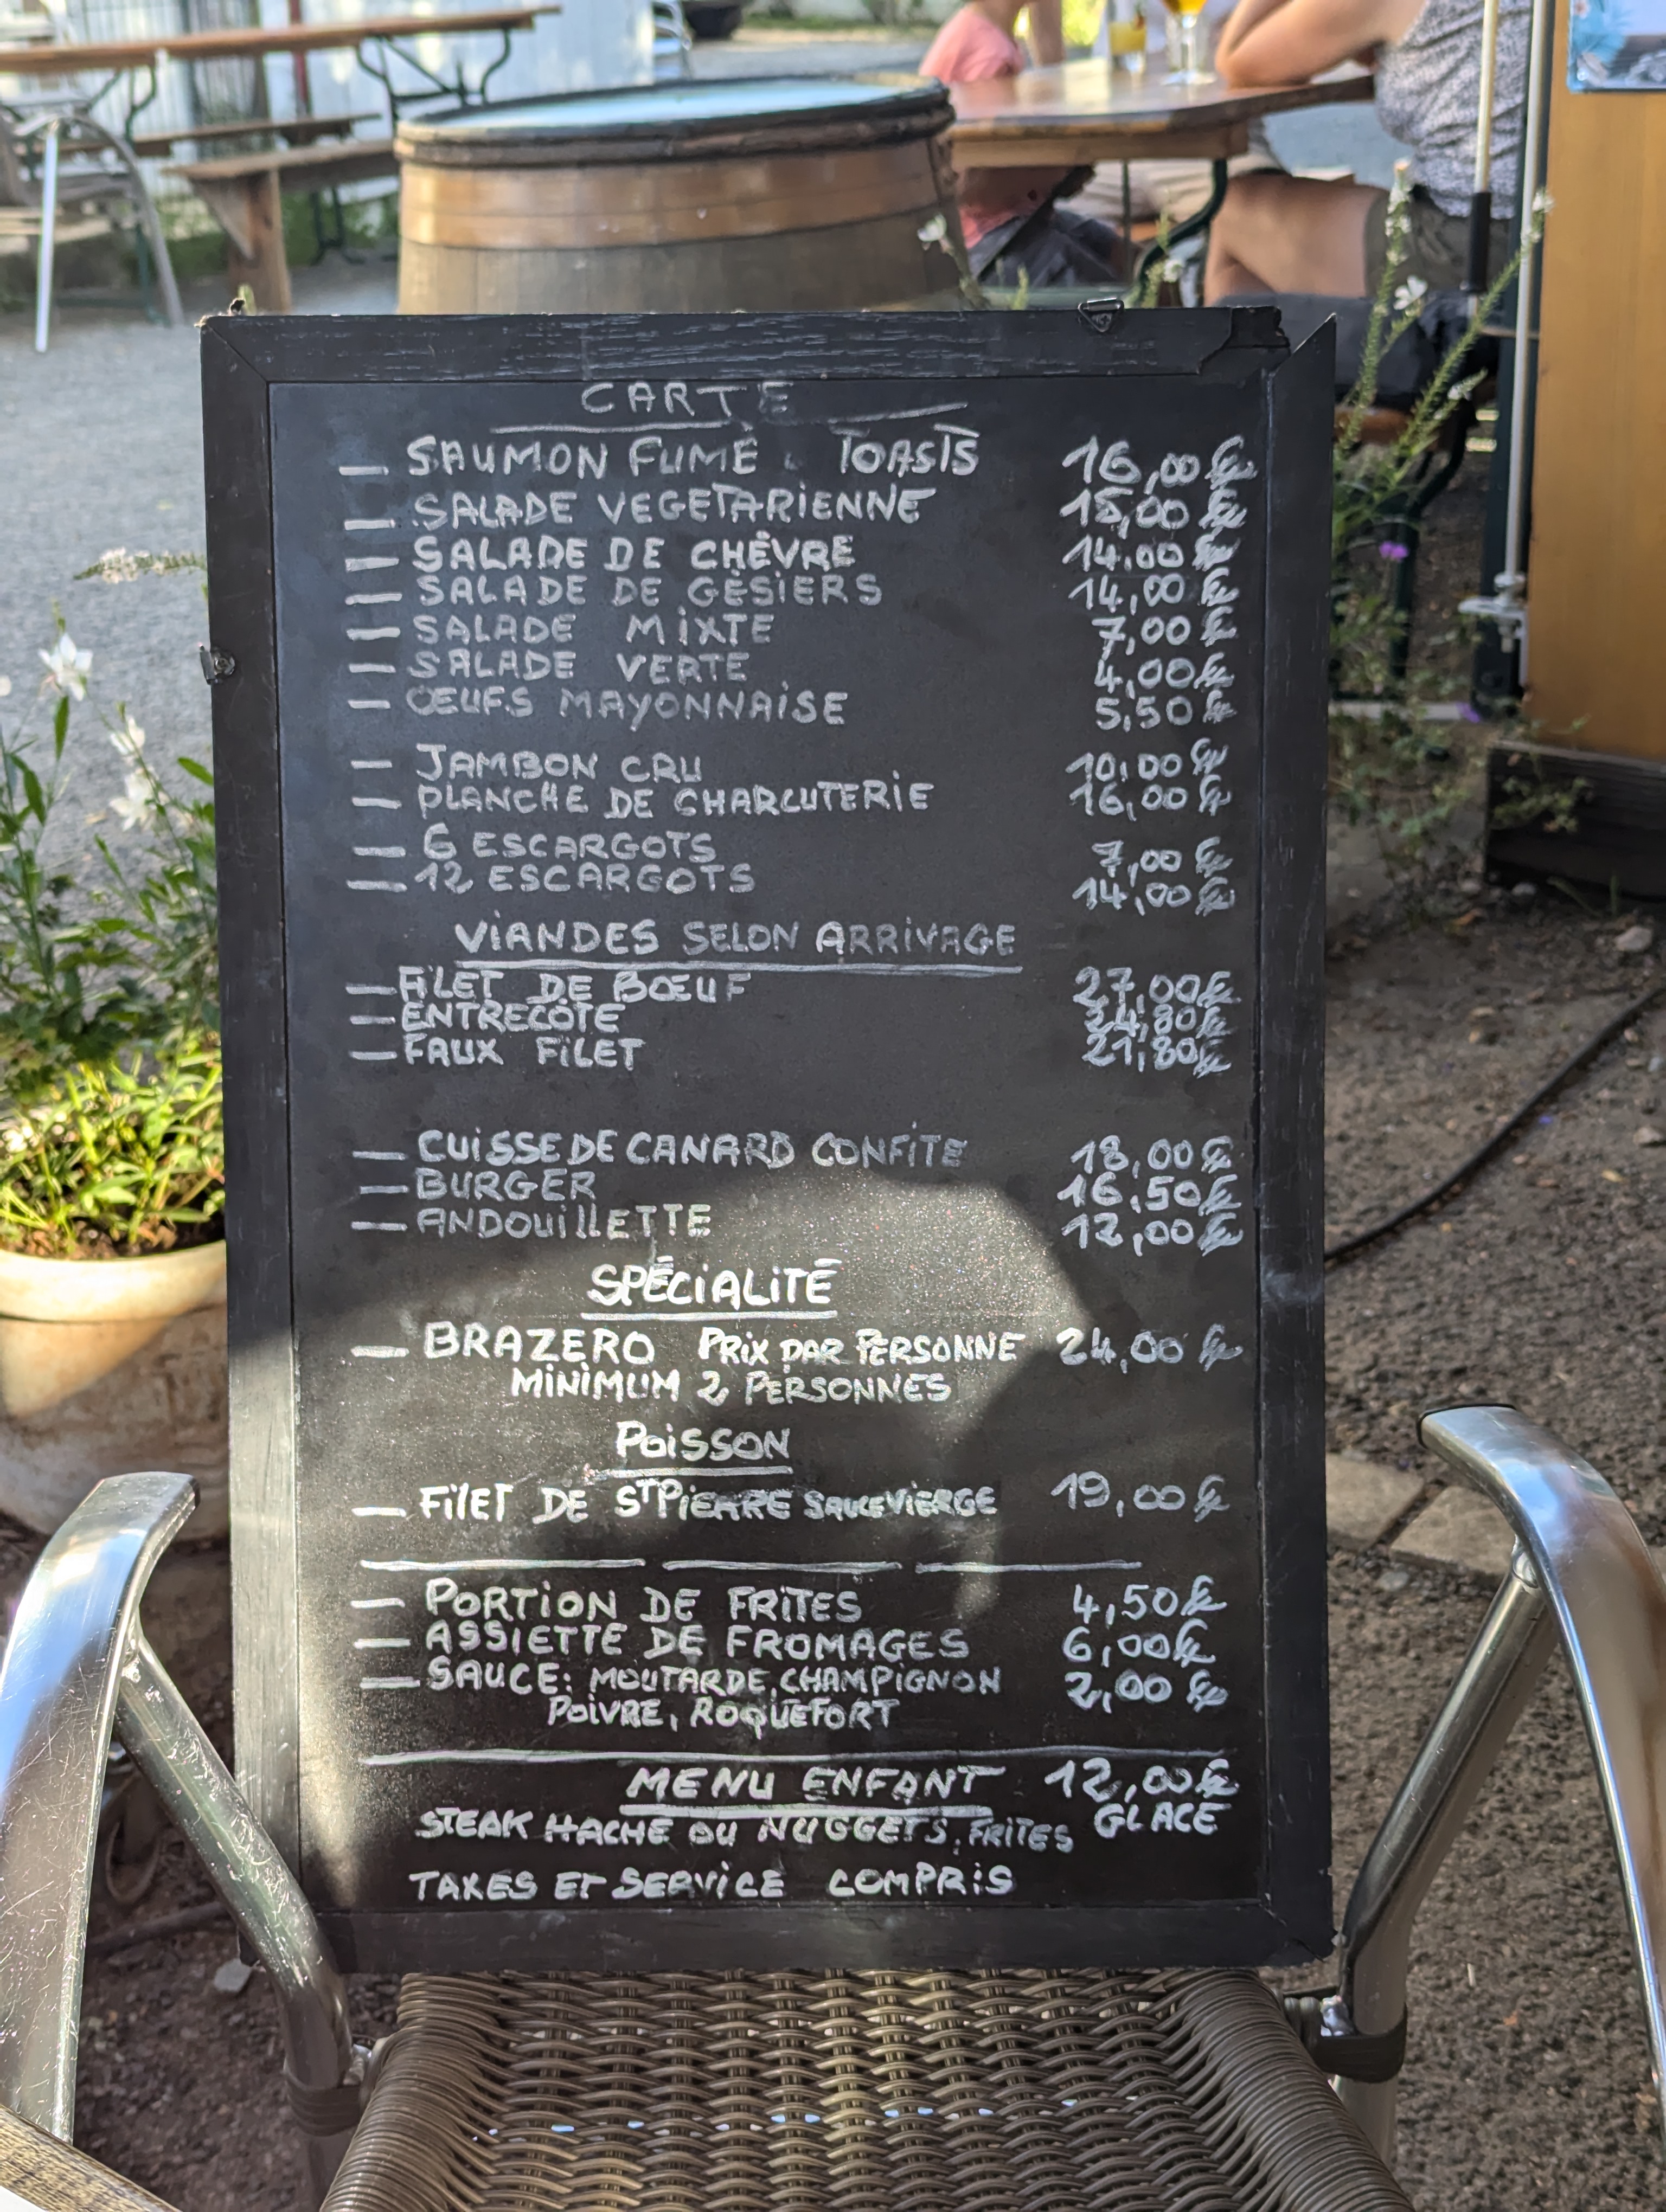 CARTE
— SAUMON FUMÉ . TOASTS 16,00 €
— SALADE VEGETARIENNE 15,00 €
— SALADE DE CHÈVRE 14,00 €
— SALADE DE GÉSIERS 14,00 €
— SALADE MIXTE 7,00 €
— SALADE VERTE 4,00 €
— ŒUFS MAYONNAISE 5,50 €
— JAMBON CRU 10,00 €
— PLANCHE DE CHARCUTERIE 16,00 €
— 6 ESCARGOTS 7,00 €
— 12 ESCARGOTS 14,00 €
VIANDES SELON ARRIVAGE
— FILET DE BŒUF 27,00 €
— ENTRECÔTE 24,80 €
— FAUX FILET 21,80 €
— CUISSE DE CANARD CONFITE 18,00 €
— BURGER 16,50 €
— ANDOUILLETTE 12,00 €
SPÉCIALITÉ
— BRAZERO PRIX PAR PERSONNE 24,00 €
MINIMUM 2 PERSONNES
POISSON
— FILET DE ST PIERRE SAUCE VIERGE 19,00 €
— PORTION DE FRITES 4,50 €
— ASSIETTE DE FROMAGES 6,00 €
— SAUCE: MOUTARDE, CHAMPIGNON 2,00 €
POIVRE, ROQUEFORT
MENU ENFANT 12,00 €
STEAK HACHÉ OU NUGGETS, FRITES GLACE
TAXES ET SERVICE COMPRIS